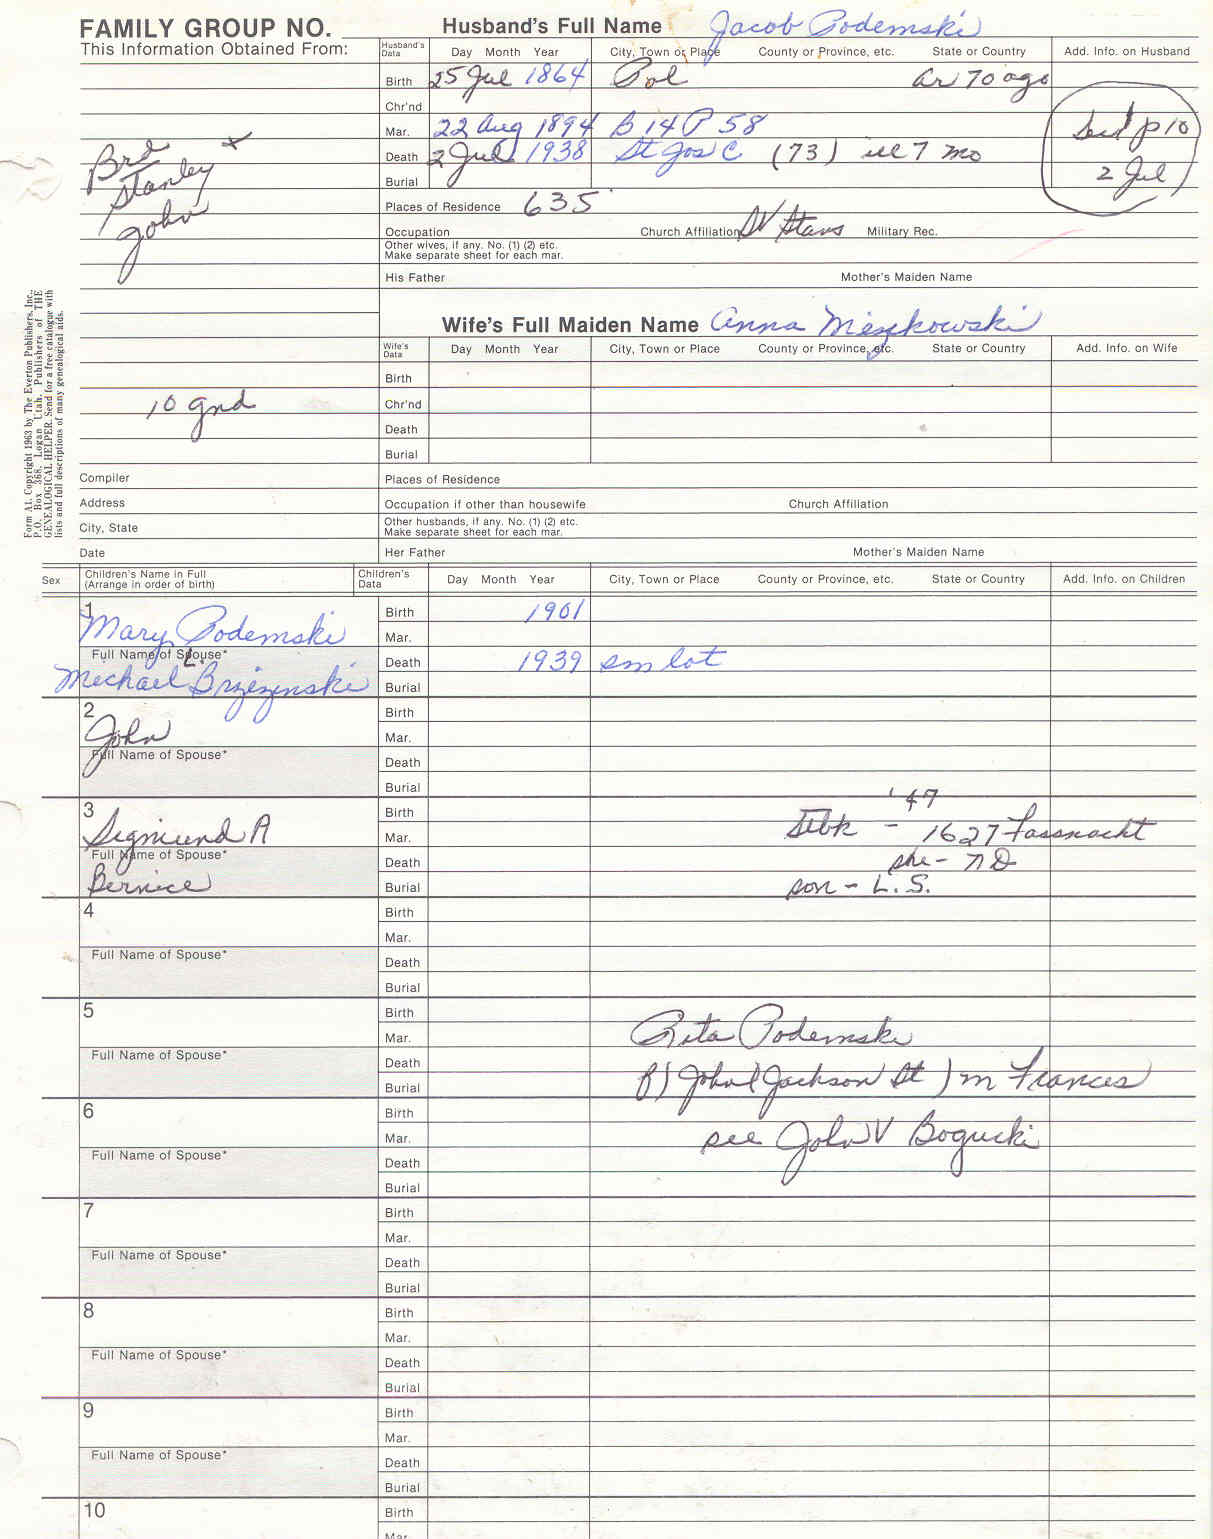 FAMILY GROUP NO.
Husband's Full Name Jacob Podemski
This Information Obtained From:
Husband's Data Day Month Year City, Town or Place County or Province, etc. State or Country Add. Info. on Husband
Birth 25 Jul 1864 Pol ar 70 ago
Chr'nd
Mar. 22 Aug 1894 B 14 P 58 p 10
Death 2 Jul 1938 St Jos C (73) ill 7 mo
2 Jul
Burial
Brd
Stanley
John
Places of Residence 635
Occupation Church Affiliation Military Rec.
Other wives, if any. No. (1) (2) etc.
Make separate sheet for each mar.
His Father Mother's Maiden Name
Form A1. Copyright 1963 by The Everton Publishers, Inc.,
P.O. Box 368, Logan Utah, Publishers of THE
GENEALOGICAL HELPER. Send for a free catalogue with
lists and full descriptions of many genealogical aids.
Wife's Full Maiden Name Anna Mieszkowski
Wife's Data Day Month Year City, Town or Place County or Province, etc. State or Country Add. Info. on Wife
Birth
10 gnd
Chr'nd
Death
Burial
Compiler Places of Residence
Address Occupation if other than housewife Church Affiliation
City, State Other husbands, if any. No. (1) (2) etc.
Make separate sheet for each mar.
Date Her Father Mother's Maiden Name
Sex Children's Name in Full
(Arrange in order of birth) Children's Data Day Month Year City, Town or Place County or Province, etc. State or Country Add. Info. on Children
1 Birth 1901
Mary Podemski Mar.
Full Name of Spouse* Death 1939 sm lot
Michael L. Brzezinski Burial
2 Birth
John Mar.
Full Name of Spouse* Death
Burial
'47
3 Birth
Sigmund A Mar. Stbk - 1627 Fassnacht
Full Name of Spouse* Death she - ND
Bernice Burial son - L.S.
4 Birth
Mar.
Full Name of Spouse* Death
Burial
5 Birth
Mar. Rita Podemski
Full Name of Spouse* Death
Burial f) John (Jackson St) m Frances
6 Birth
Mar. see John V Bogucki
Full Name of Spouse* Death
Burial
7 Birth
Mar.
Full Name of Spouse* Death
Burial
8 Birth
Mar.
Full Name of Spouse* Death
Burial
9 Birth
Mar.
Full Name of Spouse* Death
Burial
10 Birth
Mar.